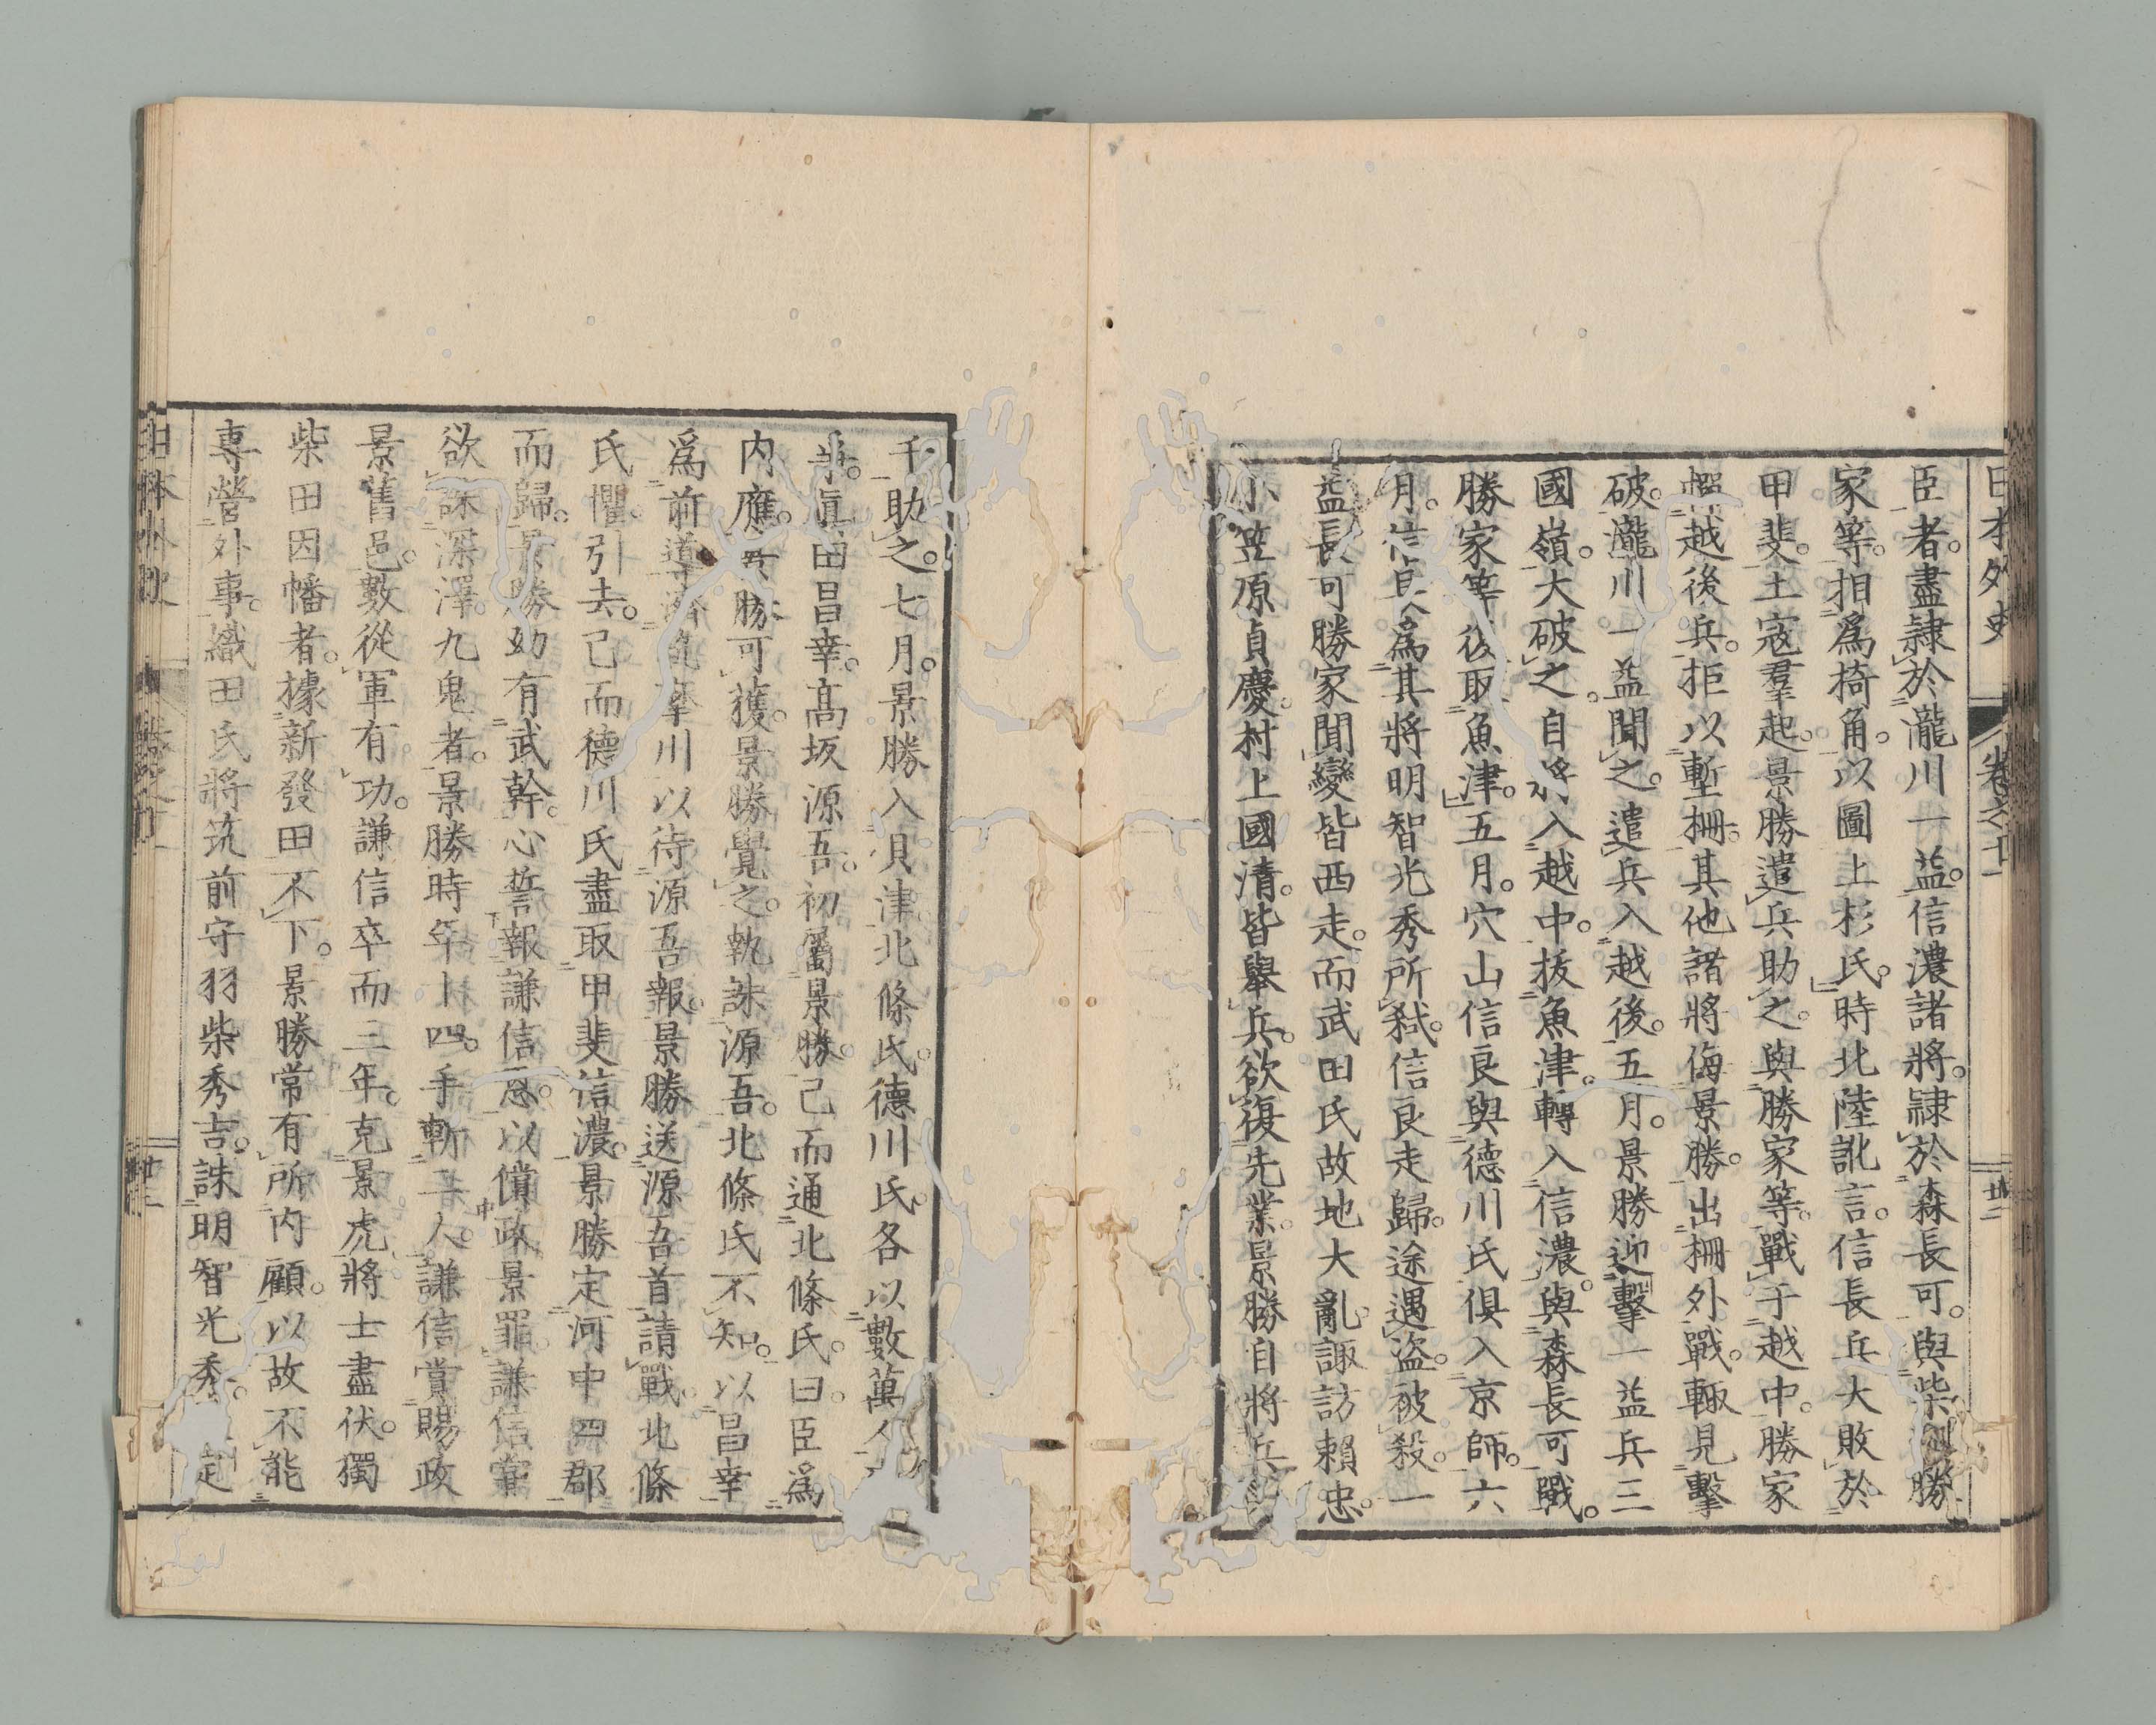 日本外史
卷之十一
廿二
臣者。盡隷於瀧川一益。信濃諸將。隷於森長可。與柴田勝
家等。相爲掎角。以圖上杉氏。時北陸訛言。信長兵大敗於
甲斐。土寇羣起。景勝遣兵助之。與勝家等。戰于越中。勝家
越後兵。拒以塹柵。其他諸將侮景勝。出柵外戰。輙見擊
破。瀧川一益聞之。遣兵入越後。五月。景勝迎擊一益兵三
國嶺。大破之。自將入越中。拔魚津。轉入信濃。與森長可戰。
勝家等復取魚津。五月。穴山信良與德川氏俱入京師。六
月。信長爲其將明智光秀所弑。信良走歸。途遇盜。被殺。一
益長可勝家聞變皆西走。而武田氏故地大亂。諏訪賴忠。
小笠原貞慶。村上國清。皆舉兵。欲復先業。景勝自將兵
千助之。七月。景勝入貝津。北條氏。德川氏。各以數萬人
爭。眞田昌幸。高坂源吾。初屬景勝。已而通北條氏。曰臣爲
内應。景勝可獲。景勝覺之。執誅源吾。北條氏不知。以昌幸
爲前導。濟筑摩川以待源吾報。景勝送源吾首請戰。北條
氏懼。引去。已而德川氏盡取甲斐信濃。景勝定河中四郡
而歸。景勝幼有武幹。心誓報謙信恩。以償政景罪。謙信嘗
欲誅深澤。九鬼者。景勝時年十四。手斬二人。謙信賞賜政
景舊邑。數從軍有功。謙信卒而三年。克景虎。將士盡伏。獨
柴田因幡者。據新發田不下。景勝常有所内顧。以故不能
專營外事。織田氏將筑前守羽柴秀吉。誅明智光秀。定